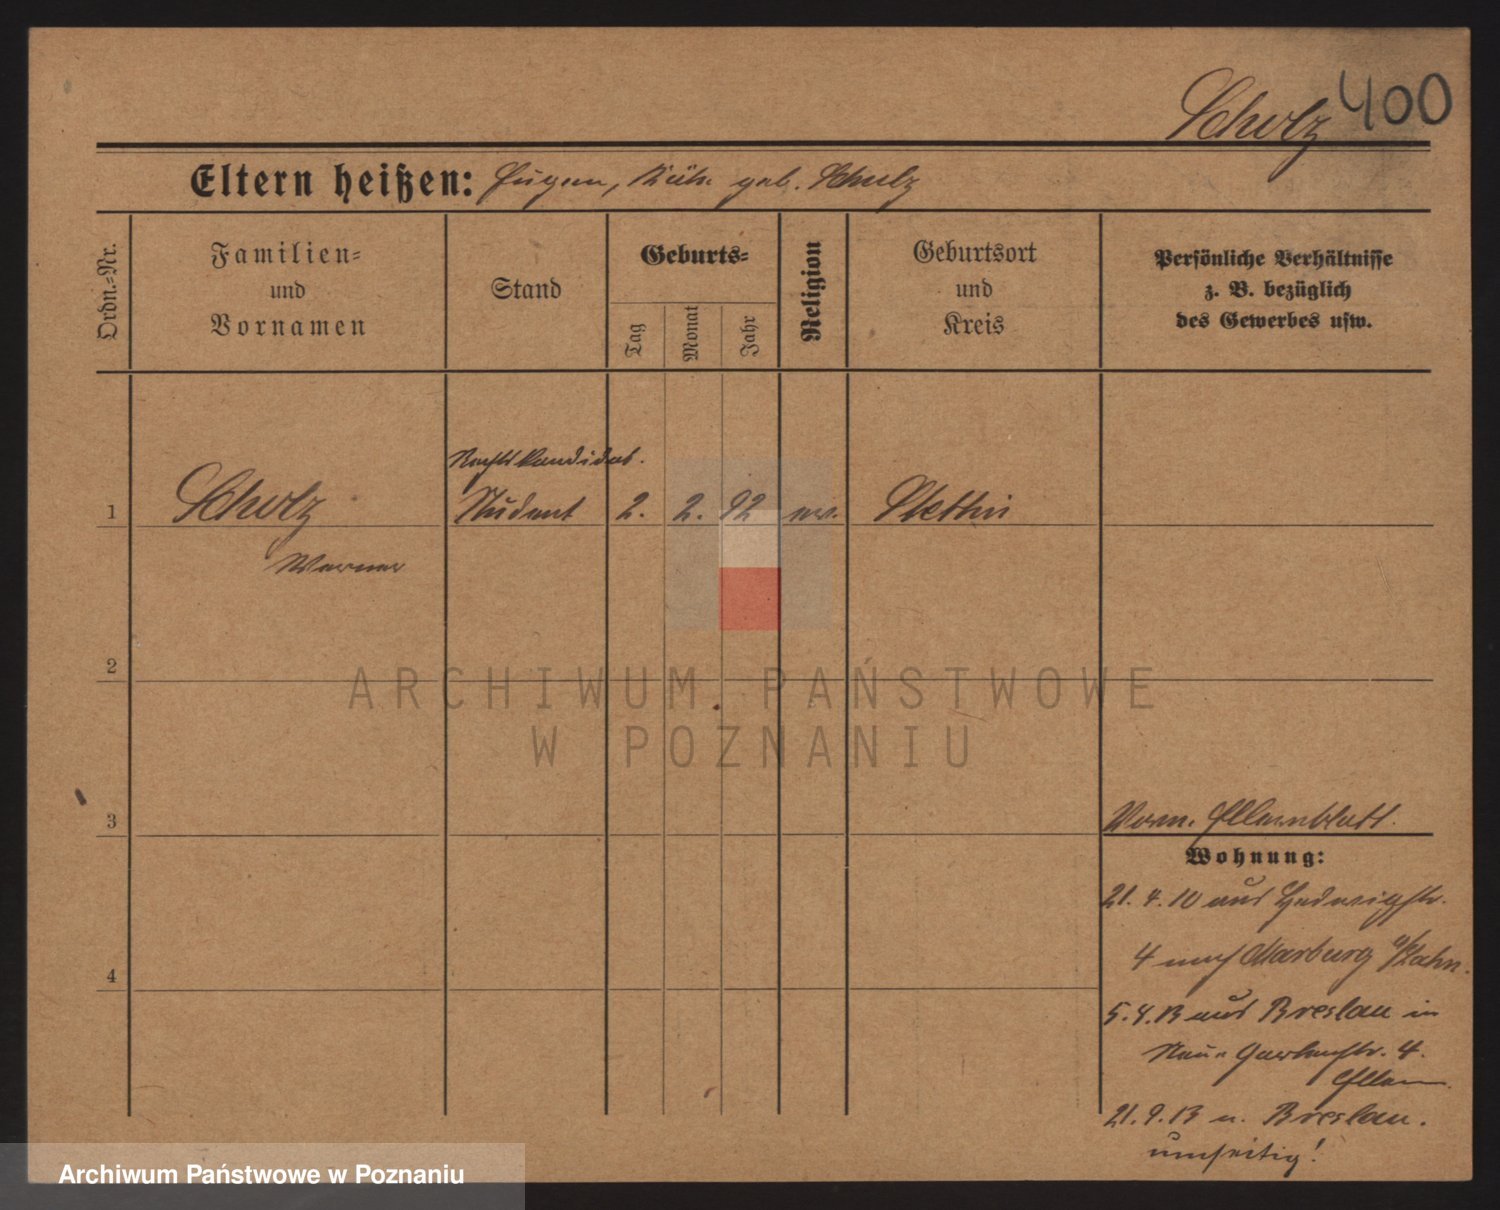 Scholz 400
Eltern heißen: Eugen, Käth. geb. Schulz
Ordn.-Nr.
Familien-
und
Vornamen
Stand
Geburts-
Tag
Monat
Jahr
Religion
Geburtsort
und
Kreis
Persönliche Verhältnisse
z. B. bezüglich
des Gewerbes usw.
Rechtskandidat.
1 Scholz Student 2. 2. 92 ev. Stettin
Werner
2
3
Vorm. Elternblatt
Wohnung:
21. 4. 10 aus Hedwigstr.
4 nach Marburg a/Lahn.
4
5. 4. 13 aus Breslau in
Neue Gartenstr. 4.
Eltern.
21. 9. 13 n. Breslau.
umseitig!
ARCHIWUM PAŃSTWOWE
W POZNANIU
Archiwum Państwowe w Poznaniu